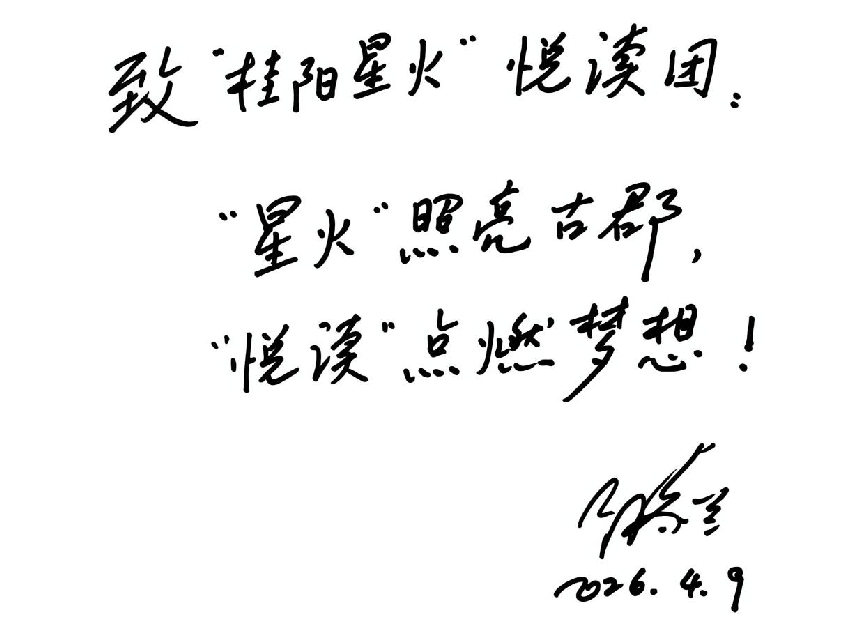 致“桂阳星火”悦读团：
“星火”照亮古郡，
“悦读”点燃梦想！
2026.4.9